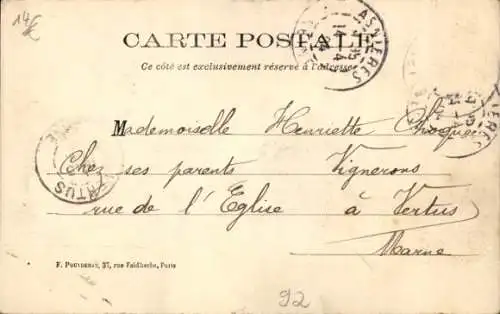 14€
CARTE POSTALE
Ce côté est exclusivement réservé à l'adresse
ASNIERES
Mademoiselle Henriette
Chez ses parents Vignerons
rue de l'Eglise à Vertus
Marne
VERTUS
F. POUYDEBAT, 37, rue Faidherbe, Paris
92